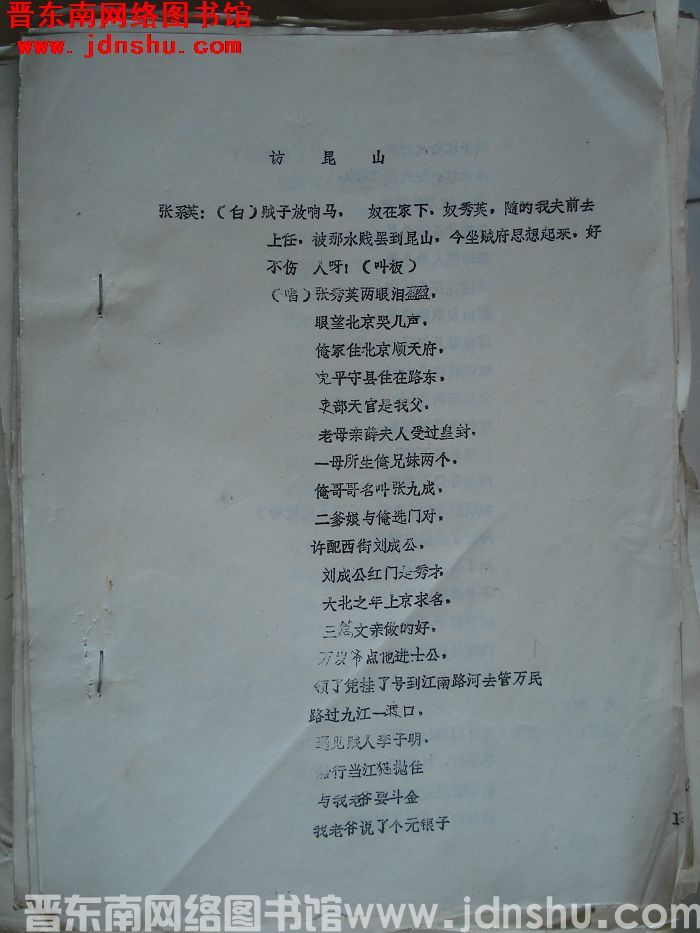 晋东南网络图书馆
www.jdnshu.com
访 昆 山
张秀英：（白）贼子放响马， 奴在家下，奴秀英，随的我夫前去
上任，被那水贼罢到昆山，今坐贼府思想起来，好
不伤 人呀！（叫板）
（唱）张秀英两眼泪盈盈，
眼望北京哭几声，
俺家住北京顺天府，
平守县住在路东，
吏部天官是我父，
老母亲薛夫人受过皇封，
一母所生俺兄妹两个，
俺哥哥名叫张九成，
二爹娘与俺选门对，
许配西街刘成公，
刘成公红门是秀才，
大北之年上京求名，
三篇文亲做的好，
万岁爷点他进士公，
领了凭挂了号到江南路河去管万民
路过九江一渡口，
遇见贼人李子明，
船行当江锚抛住
与我老爷要斗金
我老爷说了个元银子
晋东南网络图书馆 www.jdnshu.com